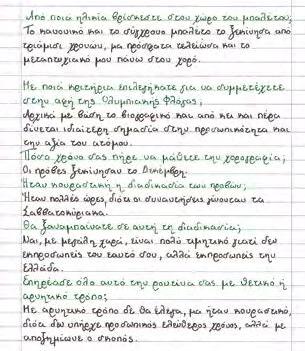 Από ποια ηλικία βρίσκεστε στον χώρο του μπαλέτου;
Το κανονικό και το σύγχρονο μπαλέτο το ξεκίνησα από
τριάμισι χρονών, μα πρόσφατα τελείωσα και το
μεταπτυχιακό μου πάνω στον χορό.
Με ποιά κριτήρια επιλεγήκατε για να συμμετέχετε
στην αφή της Ολυμπιακής Φλόγας;
Αρχικά με βάση το βιογραφικό και από κει και πέρα
δίνεται ιδιαίτερη σημασία στην προσωπικότητα και
την αξία του ατόμου.
Πόσο χρόνο σας πήρε να μάθετε την χορογραφία;
Οι πρόβες ξεκίνησαν το Δεκέμβρη.
Ήταν κουραστική η διαδικασία των προβών;
Ήταν πολλές ώρες, διότι οι συναντήσεις γίνονταν τα
Σαββατοκύριακα.
Θα ξαναμπαίνατε σε αυτή τη διαδικασία;
Ναι, με μεγάλη χαρά, είναι πολύ τιμητικό γιατί δεν
εκπροσωπείς τον εαυτό σου, αλλά εκπροσωπείς την
Ελλάδα.
Επηρέασε όλο αυτό την ρουτίνα σας με θετικό ή
αρνητικό τρόπο;
Με αρνητικό τρόπο δε θα έλεγα, μα ήταν κουραστικό,
διότι δεν υπήρχε προσωπικός ελεύθερος χρόνος, αλλά με
αποζημίωνε ο σκοπός.